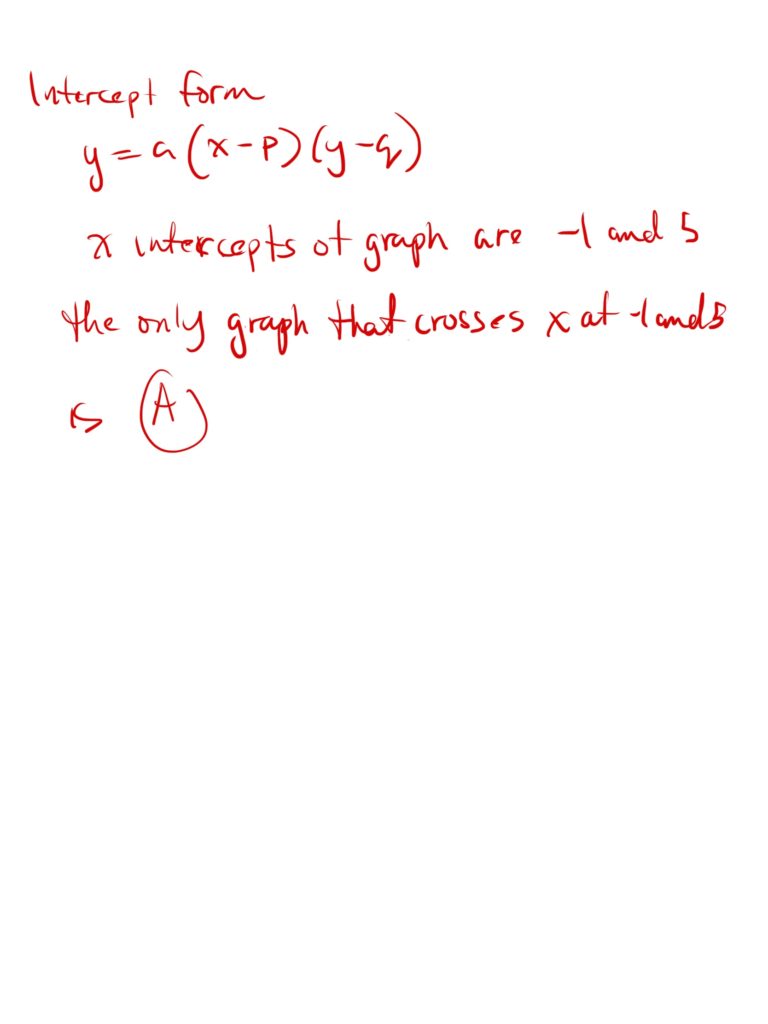 Intercept form
y = a (x - p) (y - q)
x intercepts of graph are -1 and 5
the only graph that crosses x at -1 and 5
is A